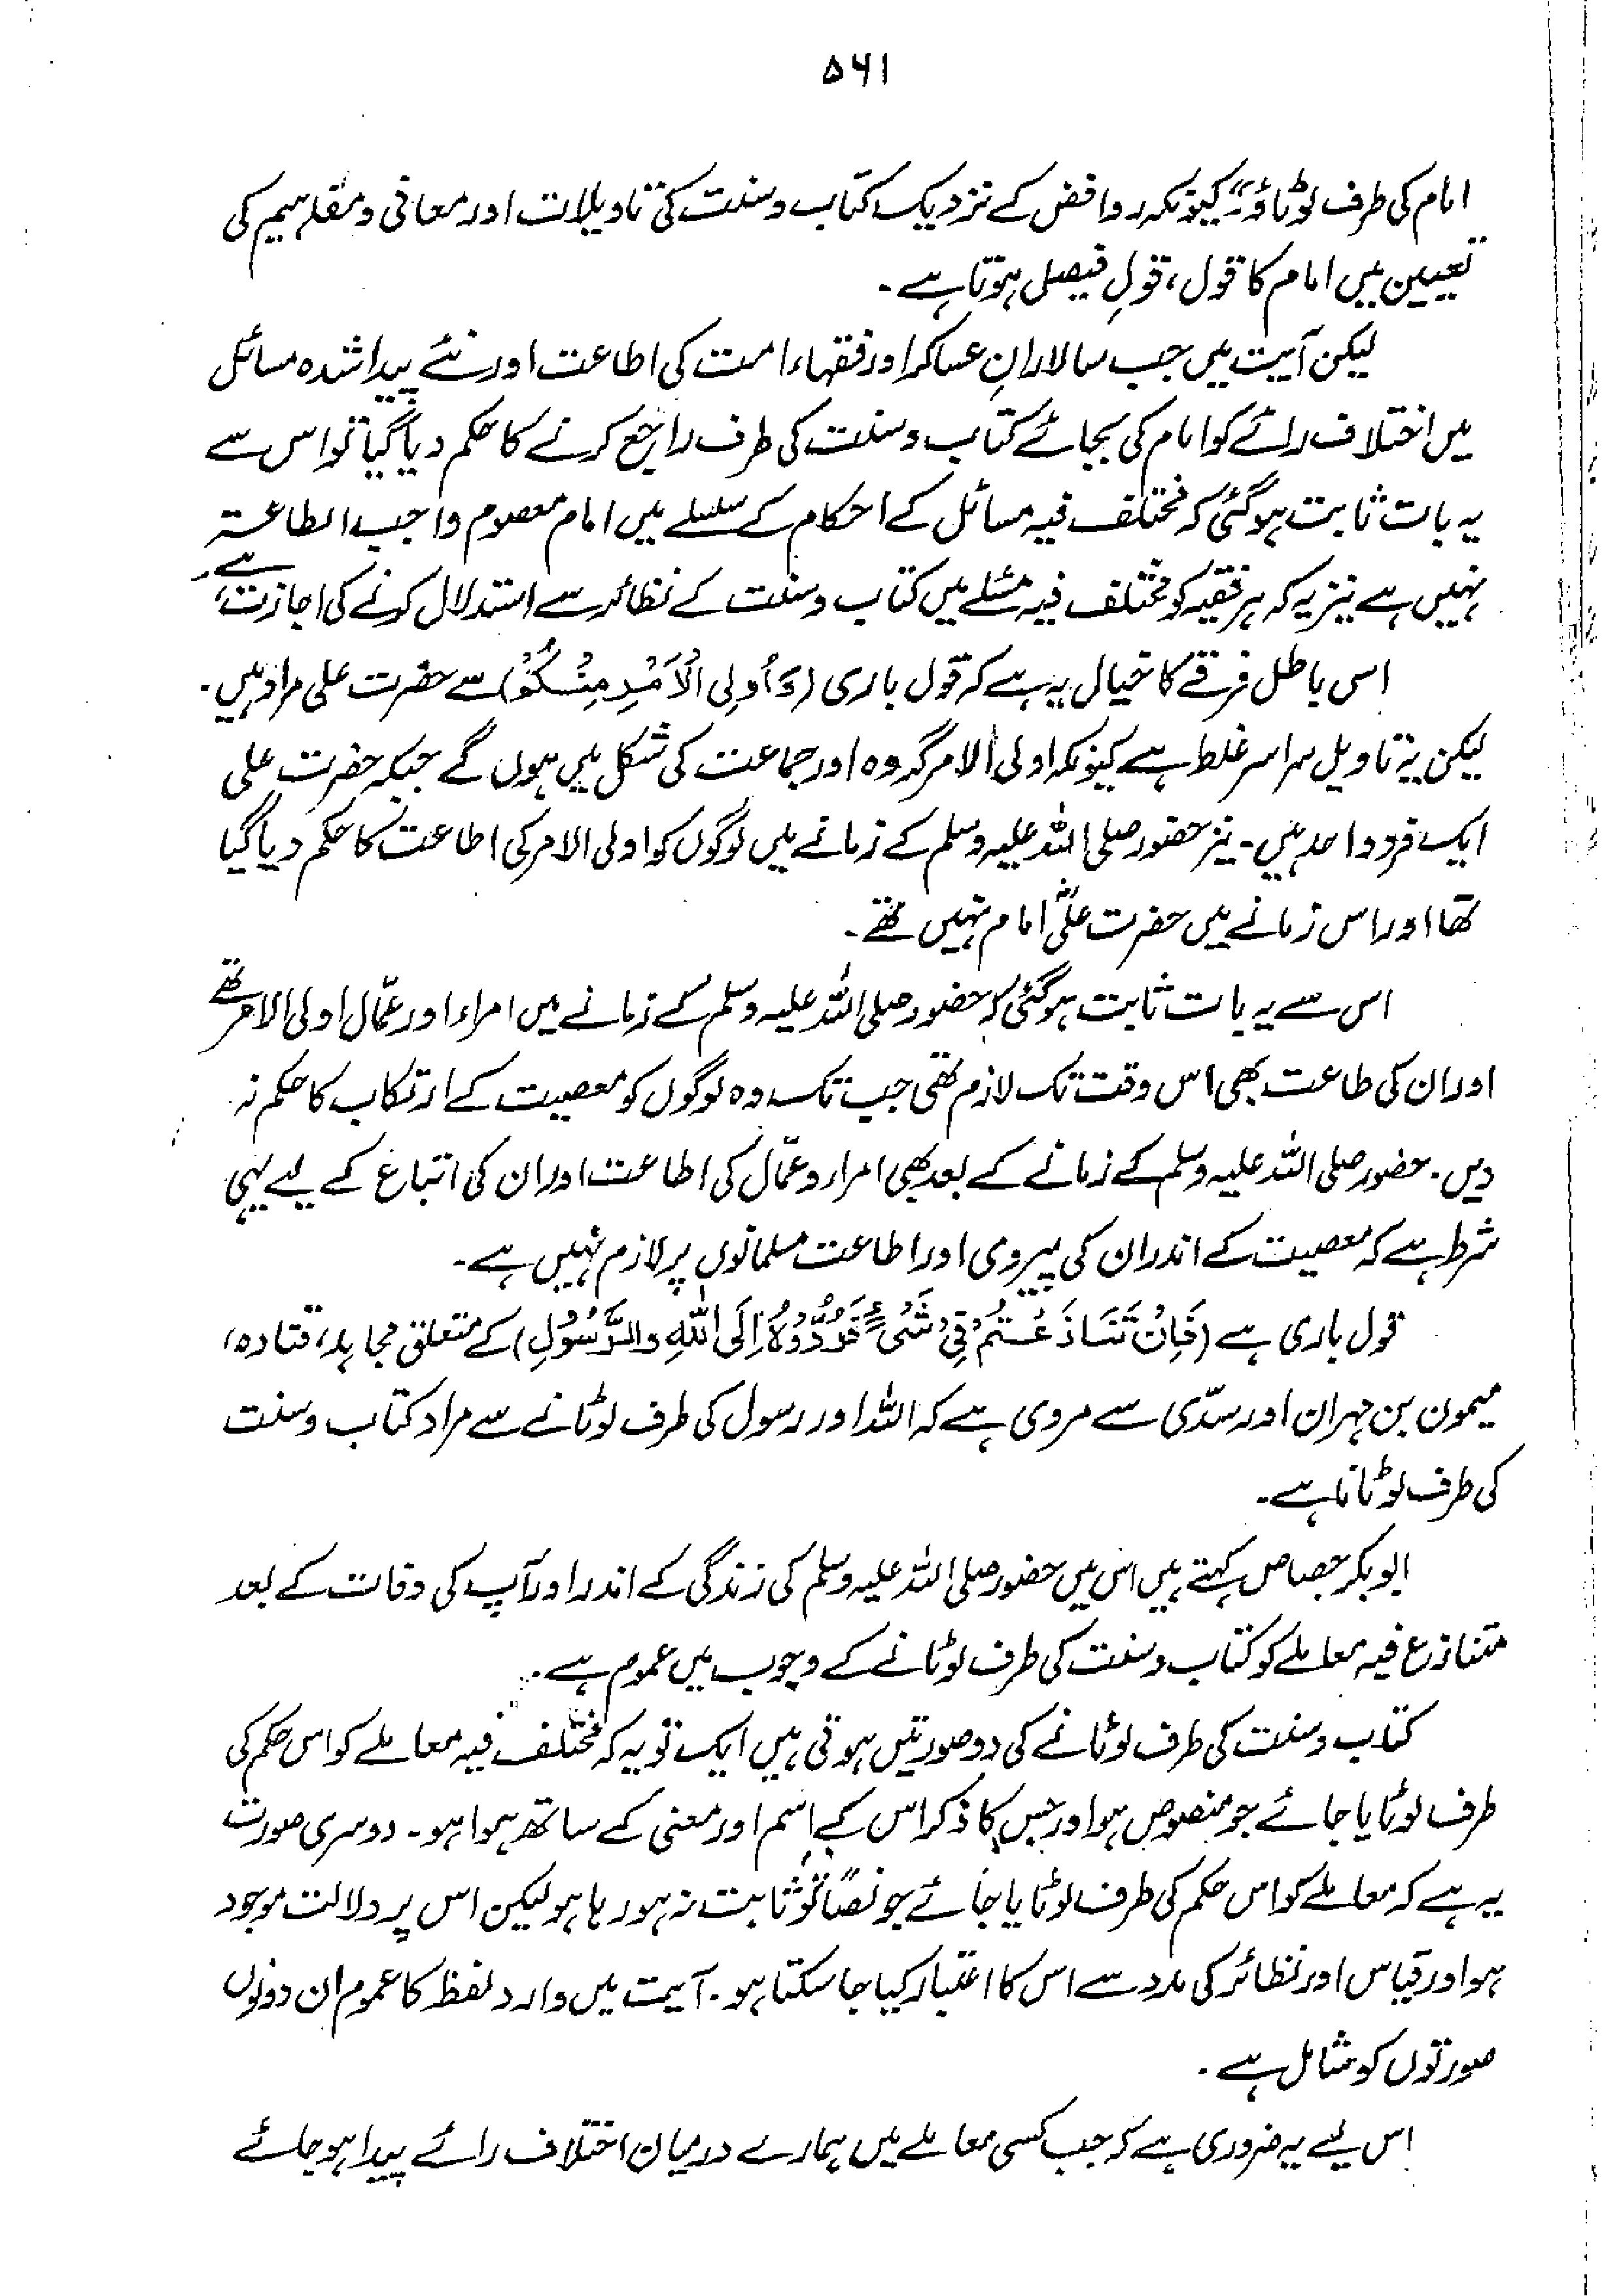 ۵۶۱
امام کی طرف لوٹاؤ" کیونکہ روافض کے نزدیک کتاب و سنت کی تاویلات اور معانی و مفاہیم کی
تعیین میں امام کا قول، قولِ فیصل ہوتا ہے۔
لیکن آیت میں جب سالارانِ عساکر اور فقہاء امت کی اطاعت اور نئے پیدا شدہ مسائل
میں اختلاف رائے کو امام کی بجائے کتاب و سنت کی طرف راجع کرنے کا حکم دیا گیا تو اس سے
یہ بات ثابت ہوگئی کہ مختلف فیہ مسائل کے احکام کے سلسلے میں امام معصوم واجب الطاعتہ
نہیں ہے نیز یہ کہ ہر فقیہ کو مختلف فیہ مسئلے میں کتاب و سنت کے نظائر سے استدلال کرنے کی اجازت ہے۔
اس باطل فرقے کا خیال یہ ہے کہ قول باری (وَأُولِی الْأَمْرِ مِنْكُمْ) سے حضرت علی مراد ہیں۔
لیکن یہ تاویل سراسر غلط ہے کیونکہ اولی الامر گروہ اور جماعت کی شکل میں ہوں گے جبکہ حضرت علی
ایک فرد واحد ہیں۔ نیز حضور صلی اللہ علیہ وسلم کے زمانے میں لوگوں کو اولی الامر کی اطاعت کا حکم دیا گیا
تھا اور اس زمانے میں حضرت علیؓ امام نہیں تھے۔
اس سے یہ بات ثابت ہوگئی کہ حضور صلی اللہ علیہ وسلم کے زمانے میں امراء اور عمّال اولی الامر تھے
اور ان کی طاعت بھی اس وقت تک لازم تھی جب تک وہ لوگوں کو معصیت کے ارتکاب کا حکم نہ
دیں۔ حضور صلی اللہ علیہ وسلم کے زمانے کے بعد بھی امراء و عمّال کی اطاعت اور ان کی اتباع کے لیے یہی
شرط ہے کہ معصیت کے اندر ان کی پیروی اور اطاعت مسلمانوں پر لازم نہیں ہے۔
قول باری ہے (فَاِنْ تَنَازَعْتُمْ فِیْ شَیْءٍ فَرُدُّوْهُ اِلَی اللّٰهِ وَالرَّسُوْلِ) کے متعلق مجاہد، قتادہ،
میمون بن مہران اور سدّی سے مروی ہے کہ اللہ اور رسول کی طرف لوٹانے سے مراد کتاب و سنت
کی طرف لوٹانا ہے۔
ابوبکر جصاص کہتے ہیں اس میں حضور صلی اللہ علیہ وسلم کی زندگی کے اندر اور آپ کی وفات کے بعد
متنازع فیہ معاملے کو کتاب و سنت کی طرف لوٹانے کے وجوب میں عموم ہے۔
کتاب و سنت کی طرف لوٹانے کی دو صورتیں ہوتی ہیں ایک تو یہ کہ مختلف فیہ معاملے کو اس حکم کی
طرف لوٹایا جائے جو منصوص ہو اور جس کا ذکر اس کے اسم اور معنی کے ساتھ ہوا ہو۔ دوسری صورت
یہ ہے کہ معاملے کو اس حکم کی طرف لوٹایا جائے جو نصًا تو ثابت نہ ہو رہا ہو لیکن اس پر دلالت موجود
ہو اور قیاس اور نظائر کی مدد سے اس کا اعتبار کیا جا سکتا ہو۔ آیت میں وارد لفظ کا عموم ان دونوں
صورتوں کو شامل ہے۔
اس لیے یہ ضروری ہے کہ جب کسی معاملے میں ہمارے درمیان اختلاف رائے پیدا ہو جائے